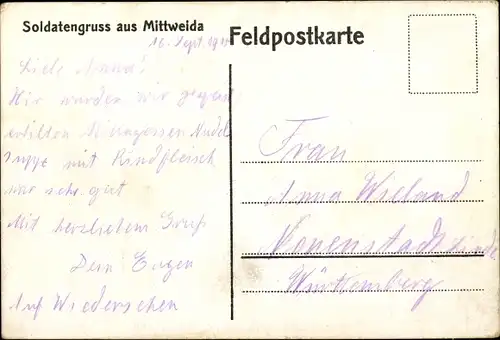 Soldatengruss aus Mittweida
Feldpostkarte
16. Sept. 191
Liebe Anna!
Wir wurden
Nudel
suppe mit Rindfleisch
war sehr gut
Mit herzlichem Gruß
Dein Eugen
Auf Wiedersehen
Frau
Anna Wieland
Neuenstadt
Württemberg